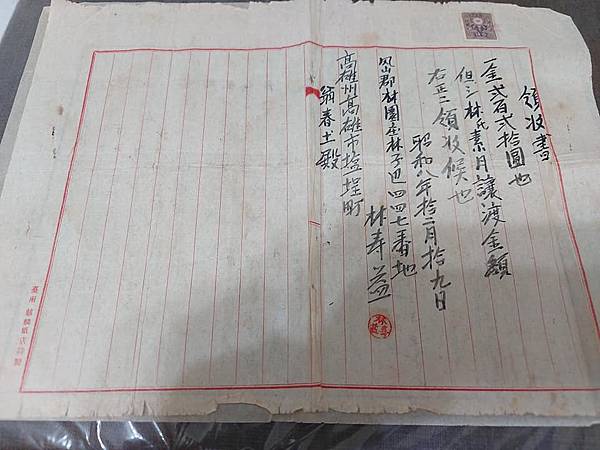 領收書
一金貳百貳拾圓也
但シ林氏素月讓渡金額
右正ニ領收候也
昭和八年拾二月拾九日
鳳山郡林園庄林子邊四四七番地
林壽益
高雄州高雄市塩埕町
翁春土殿